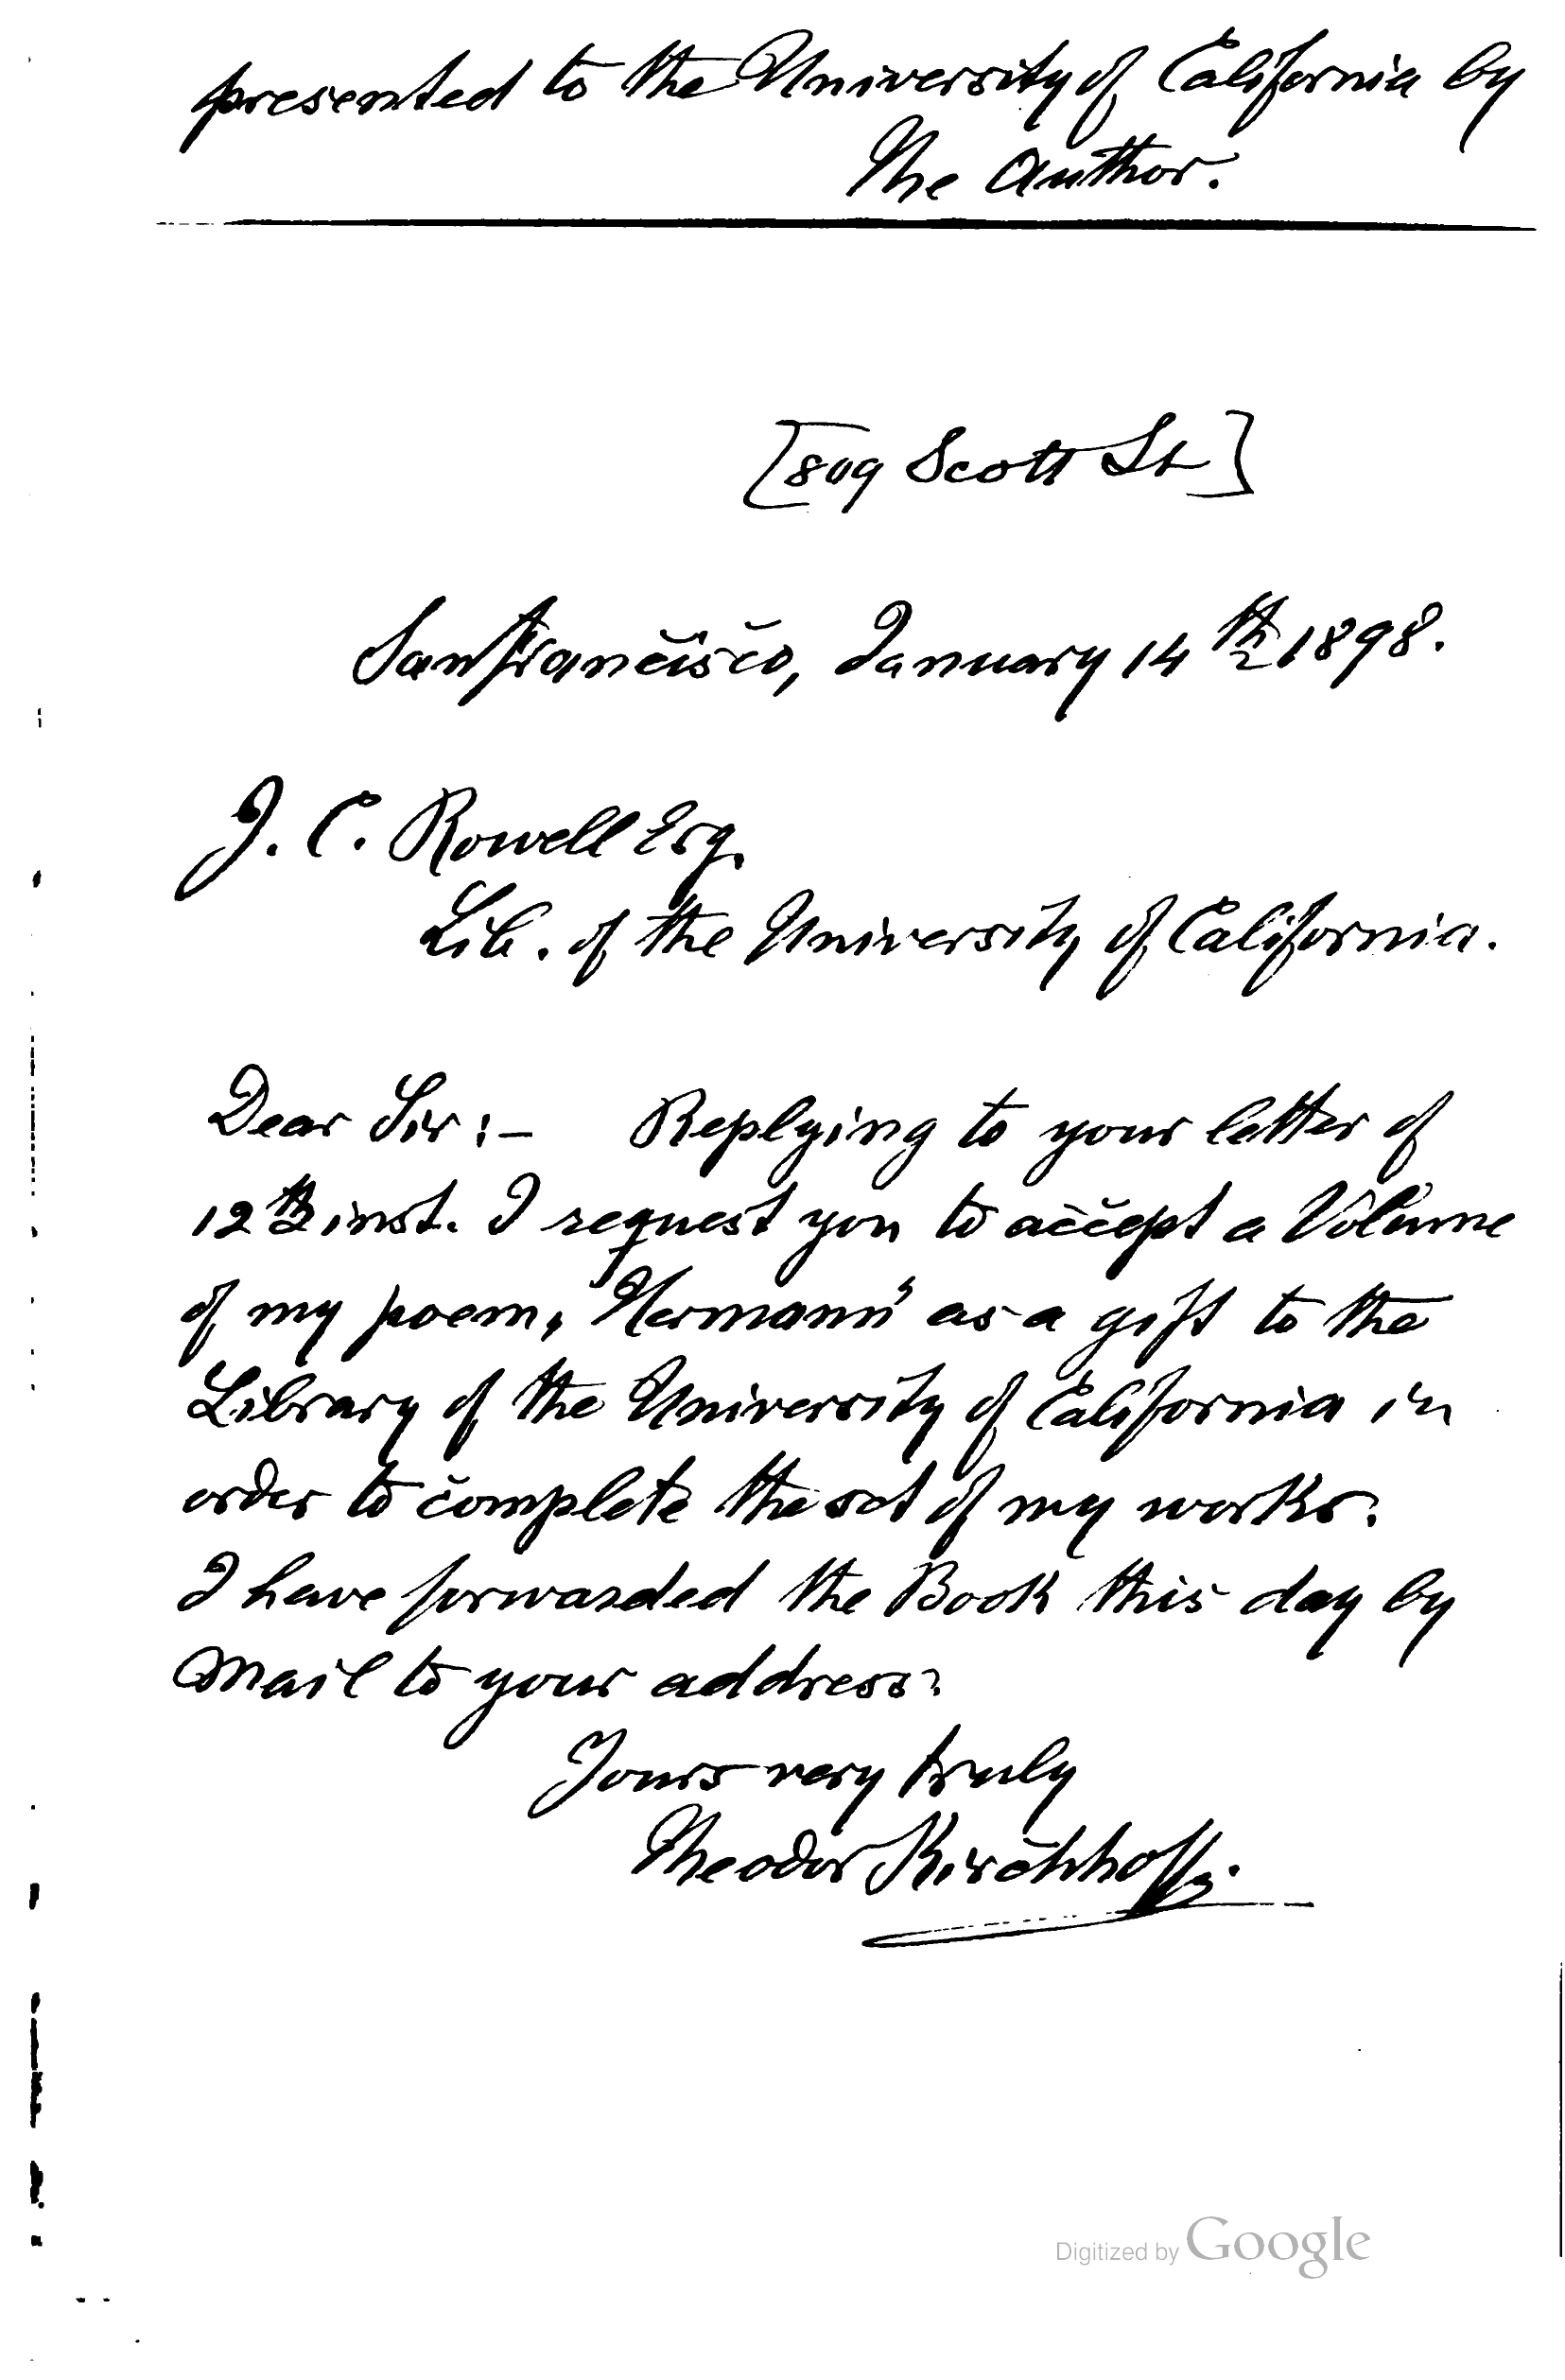 presented to the University of California by
The Author.
[809 Scott St]
San Francisco, January 14th 1898.
J. C. Rowell Esq.
Lib. of the University of California.
Dear Sir:— Replying to your letter of
12th inst. I request you to accept a Volume
of my poem, "Hermann" as a gift to the
Library of the University of California in
order to complete the set of my works.
I have forwarded the Book this day by
Mail to your address.
Yours very truly
Theodor Kirchhoff.
Digitized by Google